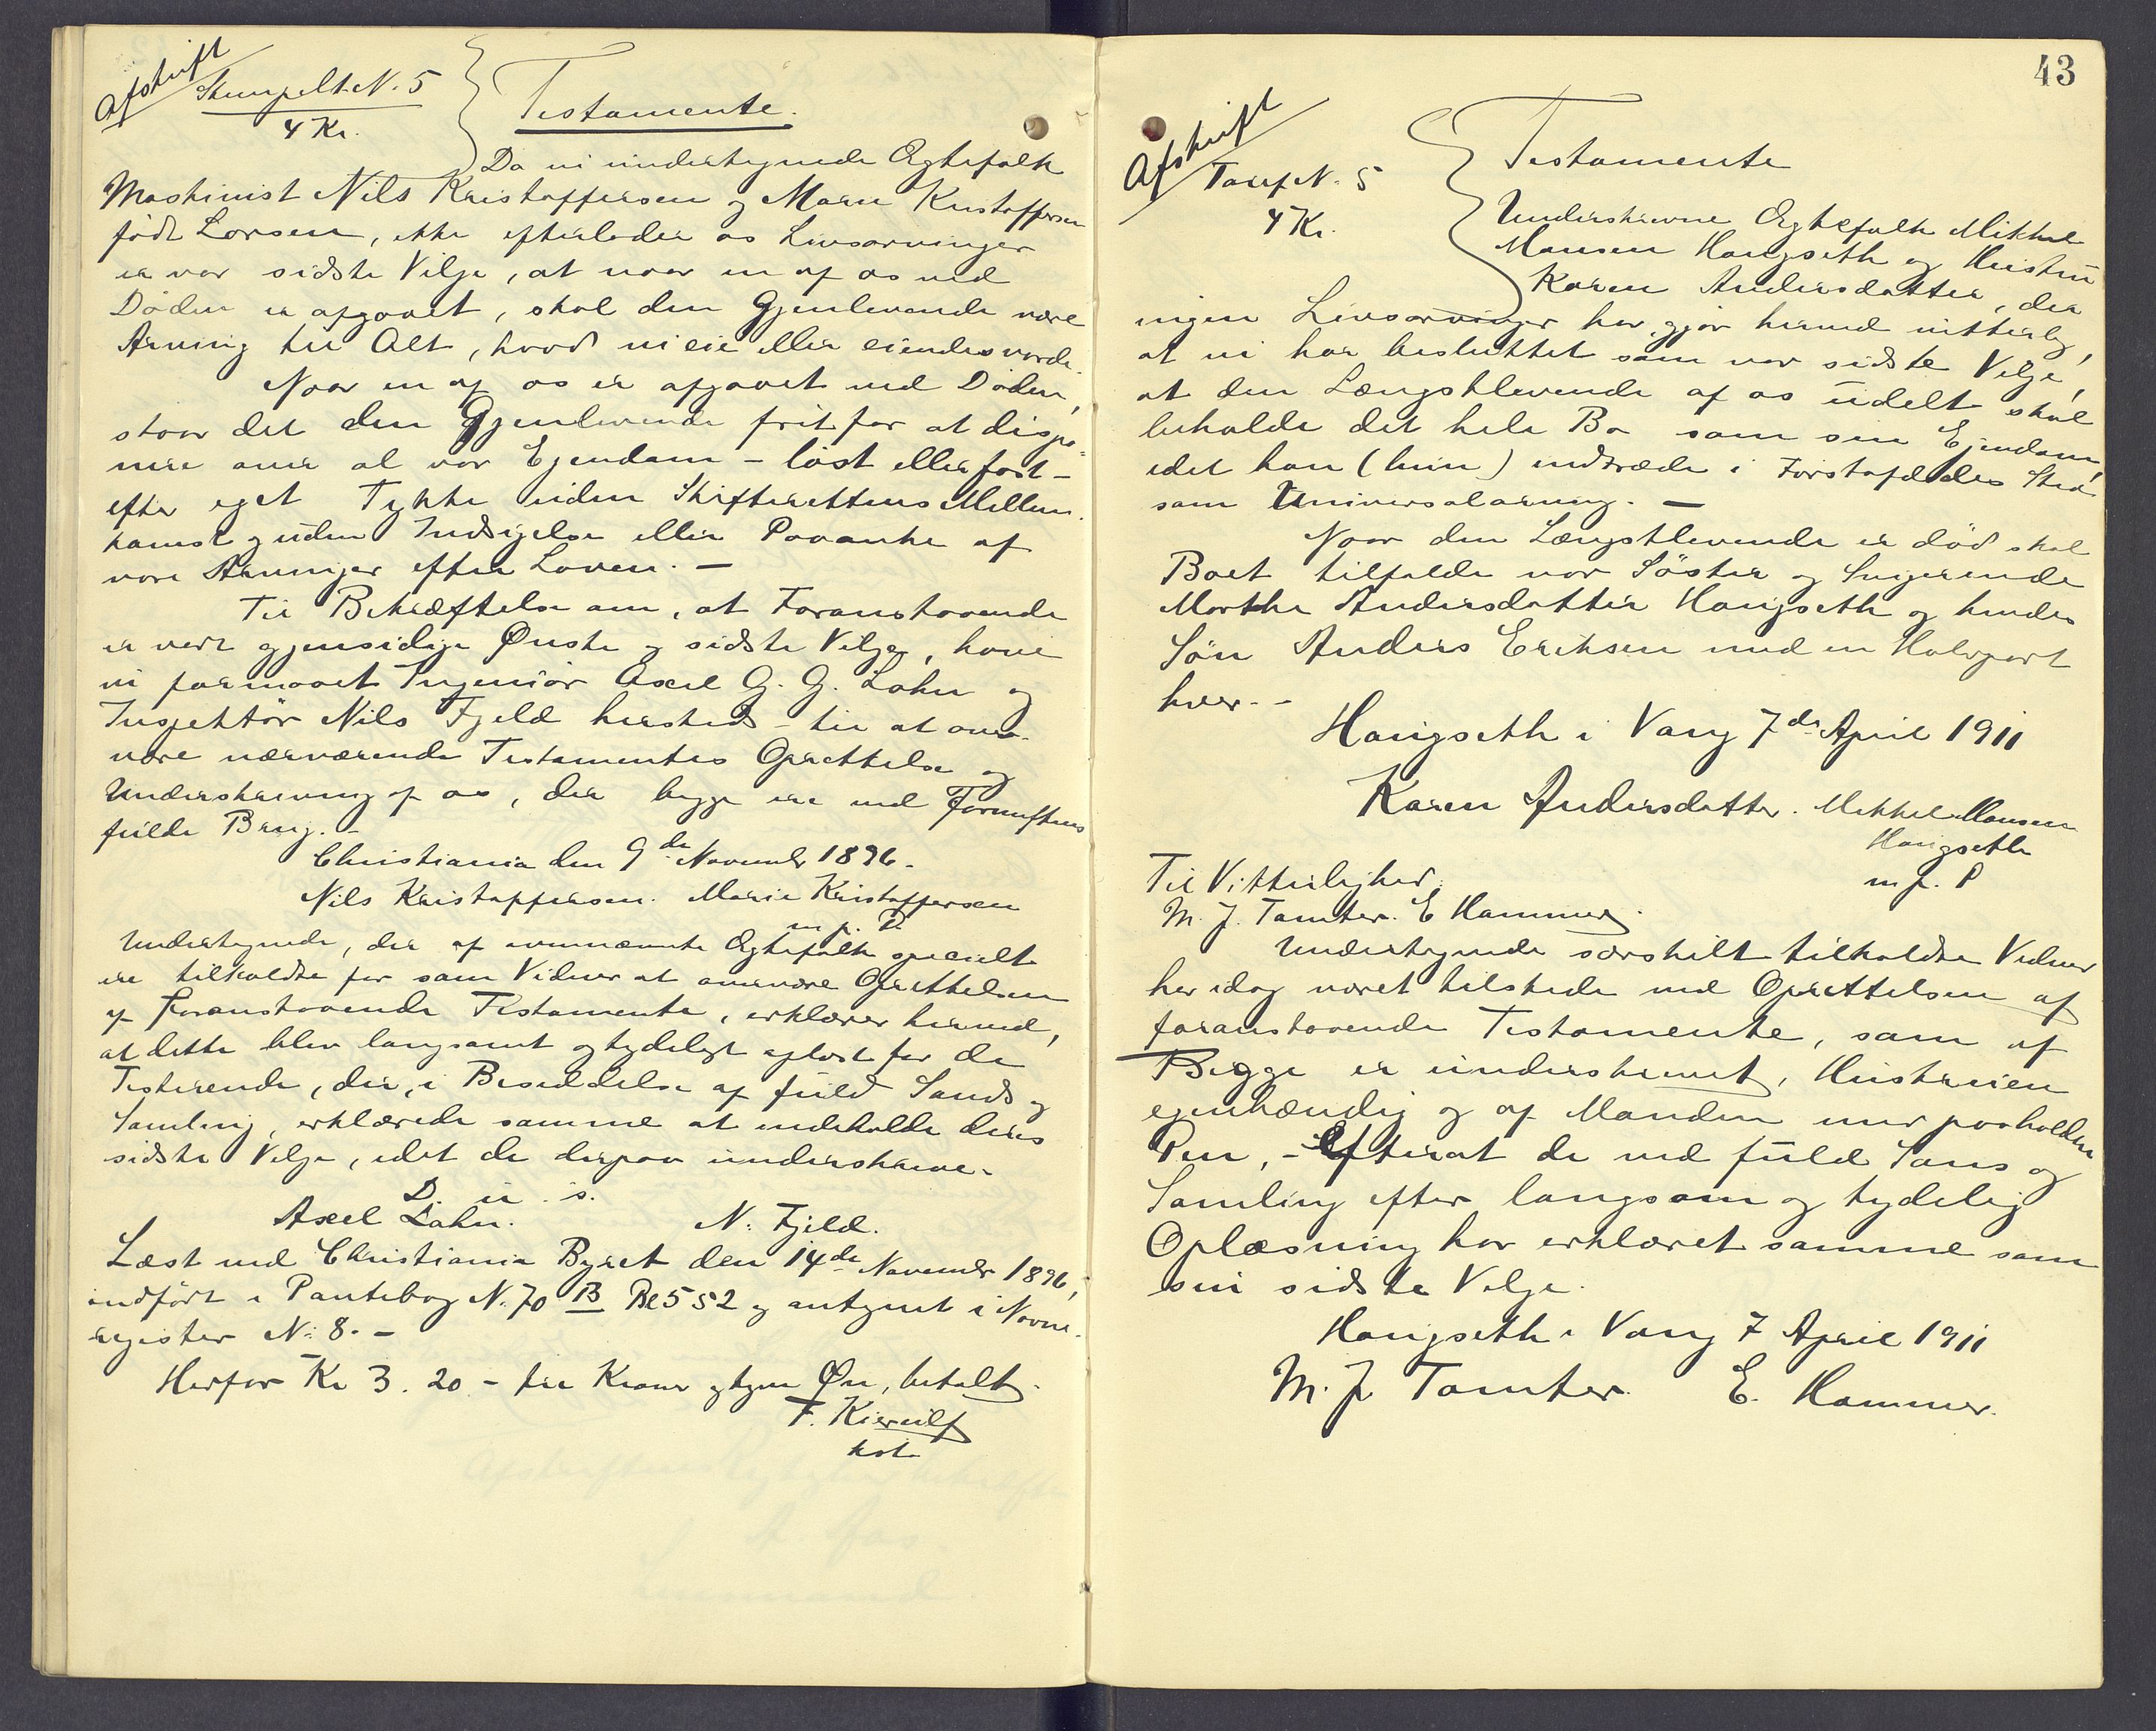 Afskrift
Stempelt N. 5
4 Kr.
Testamente.
Da vi undertegnede Ægtefolk
Maskinist Nils Kristoffersen og Maren Kristoffersen
født Larsen, ikke efterlader os Livsarvinger
er vor sidste Vilje, at naar en af os ved
Døden er afgaaet, skal den Gjenlevende være
Arving til Alt, hvad vi eie eller eiendes vorde.
Naar en af os er afgaaet ved Døden,
staar det den Gjenlevende frit for at dispo-
nere over al vor Ejendom - løst eller fast -
efter eget Tykke uden Skifterettens Mellem-
komst og uden Indsigelse eller Paaanke af
vore Arvinger efter Loven. -
Til Bekræftelse om, at Foranstaaende
er vort gjensidige Ønske og sidste Vilje, have
vi formaaet Ingeniør Axel G. G. Lahn og
Inspektør Nils Fjeld hersteds - til at over-
være nærværende Testamentes Oprettelse og
Underskrivning af os, der begge ere ved Fornuftens
fulde Brug. -
Christiania den 9de November 1896.
Nils Kristoffersen. Marie Kristoffersen
m. p. P.
Undertegnede, der af ovennævnte Ægtefolk specielt
ere tilkaldte for som Vidner at overvære Oprettelsen
af foranstaaende Testamente, erklærer herved,
at dette blev langsomt og tydeligt oplæst for de
Testerende, der, i Besiddelse af fuld Sands og
Samling, erklærede samme at indeholde deres
sidste Vilje, idet de derpaa underskreve.
D. u. s.
Axel Lahn. N. Fjeld.
Læst ved Christiania Byret den 14de November 1896,
indført i Pantebog N. 70 B Bl 552 og antegnet i Navne-
register N: 8. -
Herfor Kr 3. 20 - tre Kroner og tyve Øre, betalt.
F. Kierulf
kst.
43
Afskrift
Tarif N. 5
4 Kr.
Testamente
Underskrevne Ægtefolk Mikkel
Hansen Haugseth og Hustru
Karen Andersdatter, der
ingen Livsarvinger har, gjør herved vitterlig,
at vi har besluttet som vor sidste Vilje,
at den Længstlevende af os udelt skal
beholde det hele Bo som sin Ejendom,
idet han (hun) indtræde i Førstafdødes Sted
som Universalarving. -
Naar den Længstlevende er død skal
Boet tilfalde vor Søster og Svigerinde
Marthe Andersdatter Haugseth og hendes
Søn Anders Eriksen med en Halvpart
hver. -
Haugseth i Vang 7de April 1911
Karen Andersdatter. Mikkel Hansen
Haugseth
m p. P
Til Vitterlighed.
M. J. Tomter. E Hammer.
Undertegnede særskilt tilkaldte Vidner
har idag været tilstede ved Oprettelsen af
foranstaaende Testamente, som af
Begge er underskrevet, Hustruen
egenhændig og af Manden med paaholden
Pen, - efterat de ved fuld Sans og
Samling efter langsom og tydelig
Oplæsning har erklæret samme som
sin sidste Vilje.
Haugseth i Vang 7 April 1911
M. J Tomter. E. Hammer.